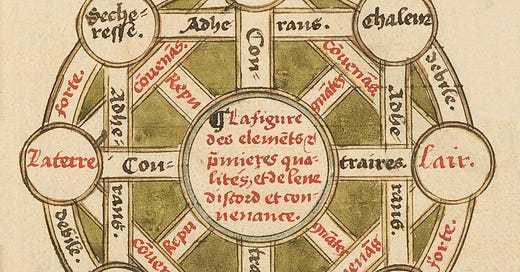 Seche-
resse.
Adhe
rans.
chaleur
Con-
couenās.
Repu
couenās
gnātes
forte.
debile.
Adhe-
rans.
Adhe
rans.
La terre
Con-
traires.
Lair.
¶ La figure
des elemēts &
p̄mieres qua-
litēs, et de leur
discord et con-
uenance.
debile.
forte.
couenās
Repu
gnātes
couenās
trai